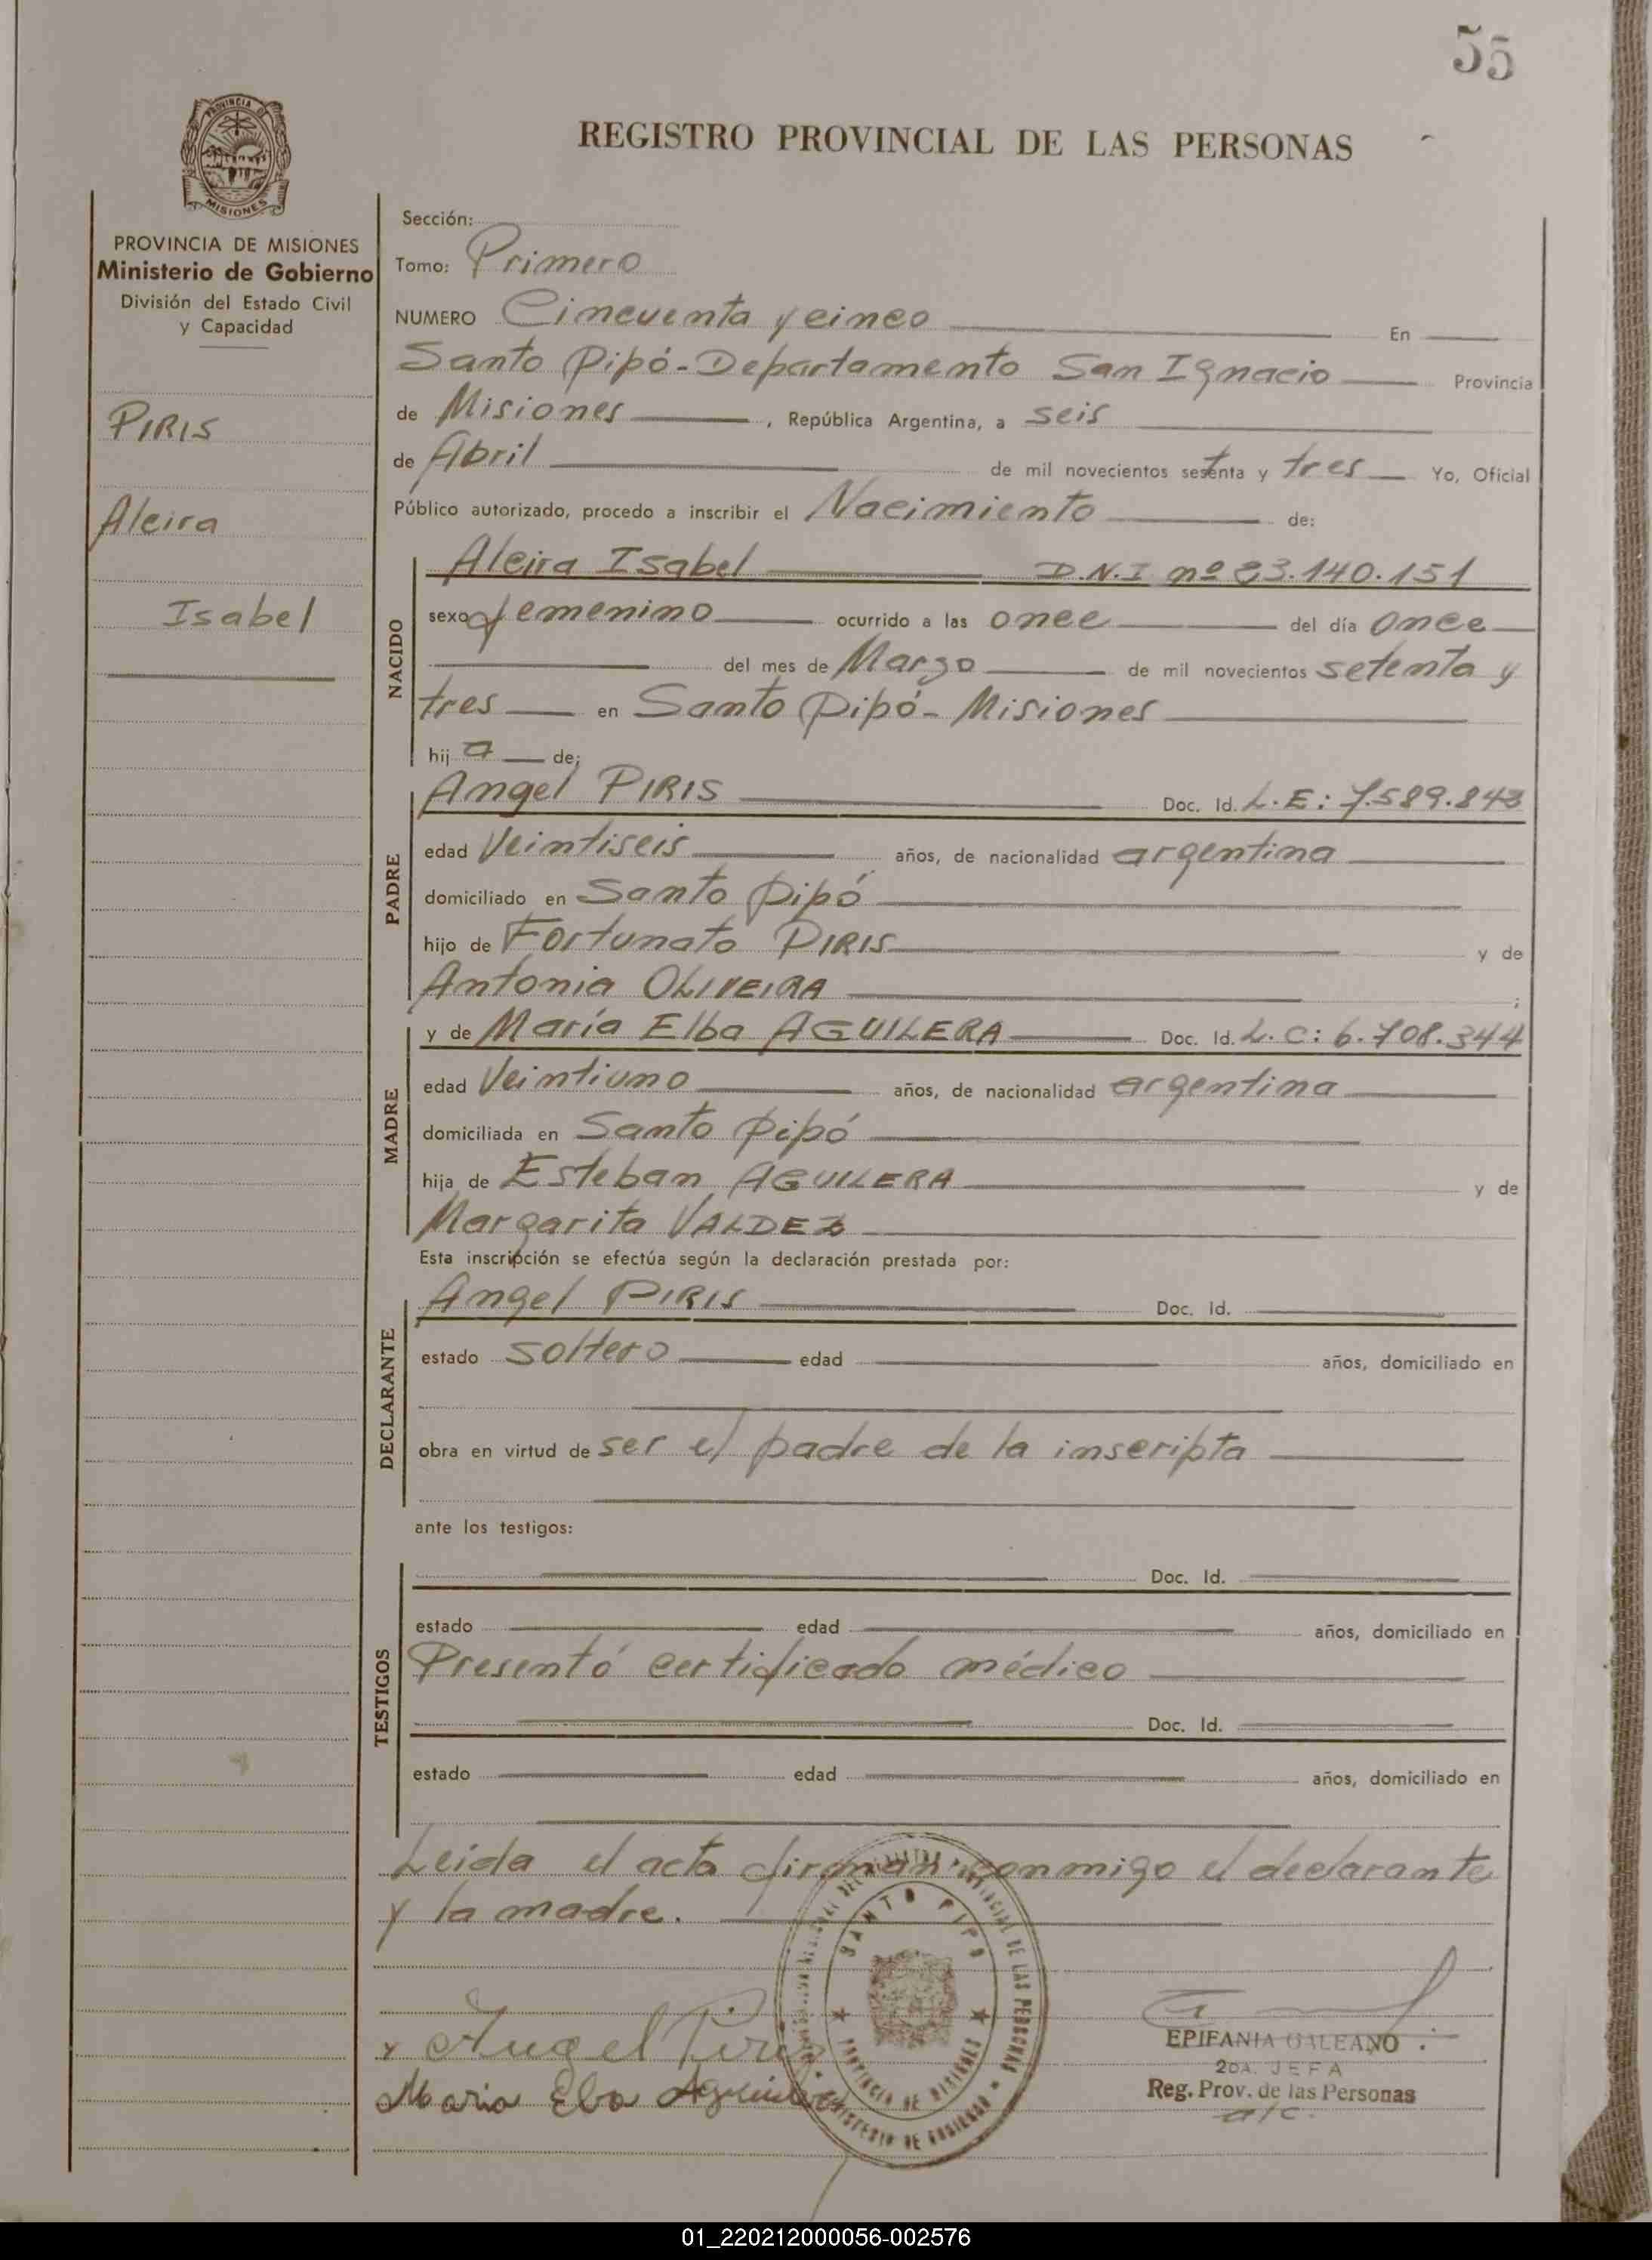 55
PROVINCIA DE
MISIONES
REGISTRO PROVINCIAL DE LAS PERSONAS
PROVINCIA DE MISIONES
Ministerio de Gobierno
División del Estado Civil
y Capacidad
PIRIS
Alcira
Isabel
Sección:
Tomo: Primero
NUMERO Cincuenta y cinco En
Santo Pipó-Departamento San Ignacio Provincia
de Misiones , República Argentina, a seis
de Abril de mil novecientos setenta y tres Yo, Oficial
Público autorizado, procedo a inscribir el Nacimiento de:
NACIDO
Alcira Isabel D.N.I nº 23.140.151
sexo femenino ocurrido a las once del día once
del mes de Marzo de mil novecientos setenta y
tres en Santo Pipó- Misiones
hij a de;
PADRE
Angel PIRIS Doc. Id. L.E: 7.589.843
edad Veintiseis años, de nacionalidad argentina
domiciliado en Santo Pipó
hijo de Fortunato PIRIS y de
Antonia OLIVEIRA ;
MADRE
y de María Elba AGUILERA Doc. Id. L.C: 6.708.344
edad Veintiuno años, de nacionalidad argentina
domiciliada en Santo Pipó
hija de Esteban AGUILERA y de
Margarita VALDEZ
Esta inscripción se efectúa según la declaración prestada por:
DECLARANTE
Angel PIRIS Doc. Id.
estado soltero edad años, domiciliado en
obra en virtud de ser el padre de la inscripta
ante los testigos:
TESTIGOS
Doc. Id.
estado edad años, domiciliado en
Presentó certificado médico
Doc. Id.
estado edad años, domiciliado en
Leida el acta firman conmigo el declarante
y la madre.
SANTO PIPO
PROVINCIA DE MISIONES
PROVINCIAL DE LAS PERSONAS - MINISTERIO DE GOBIERNO
x Angel Piris
Maria Elba Aguilera
EPIFANIA GALEANO
2DA. JEFA
Reg. Prov. de las Personas
a/c.
01_220212000056-002576